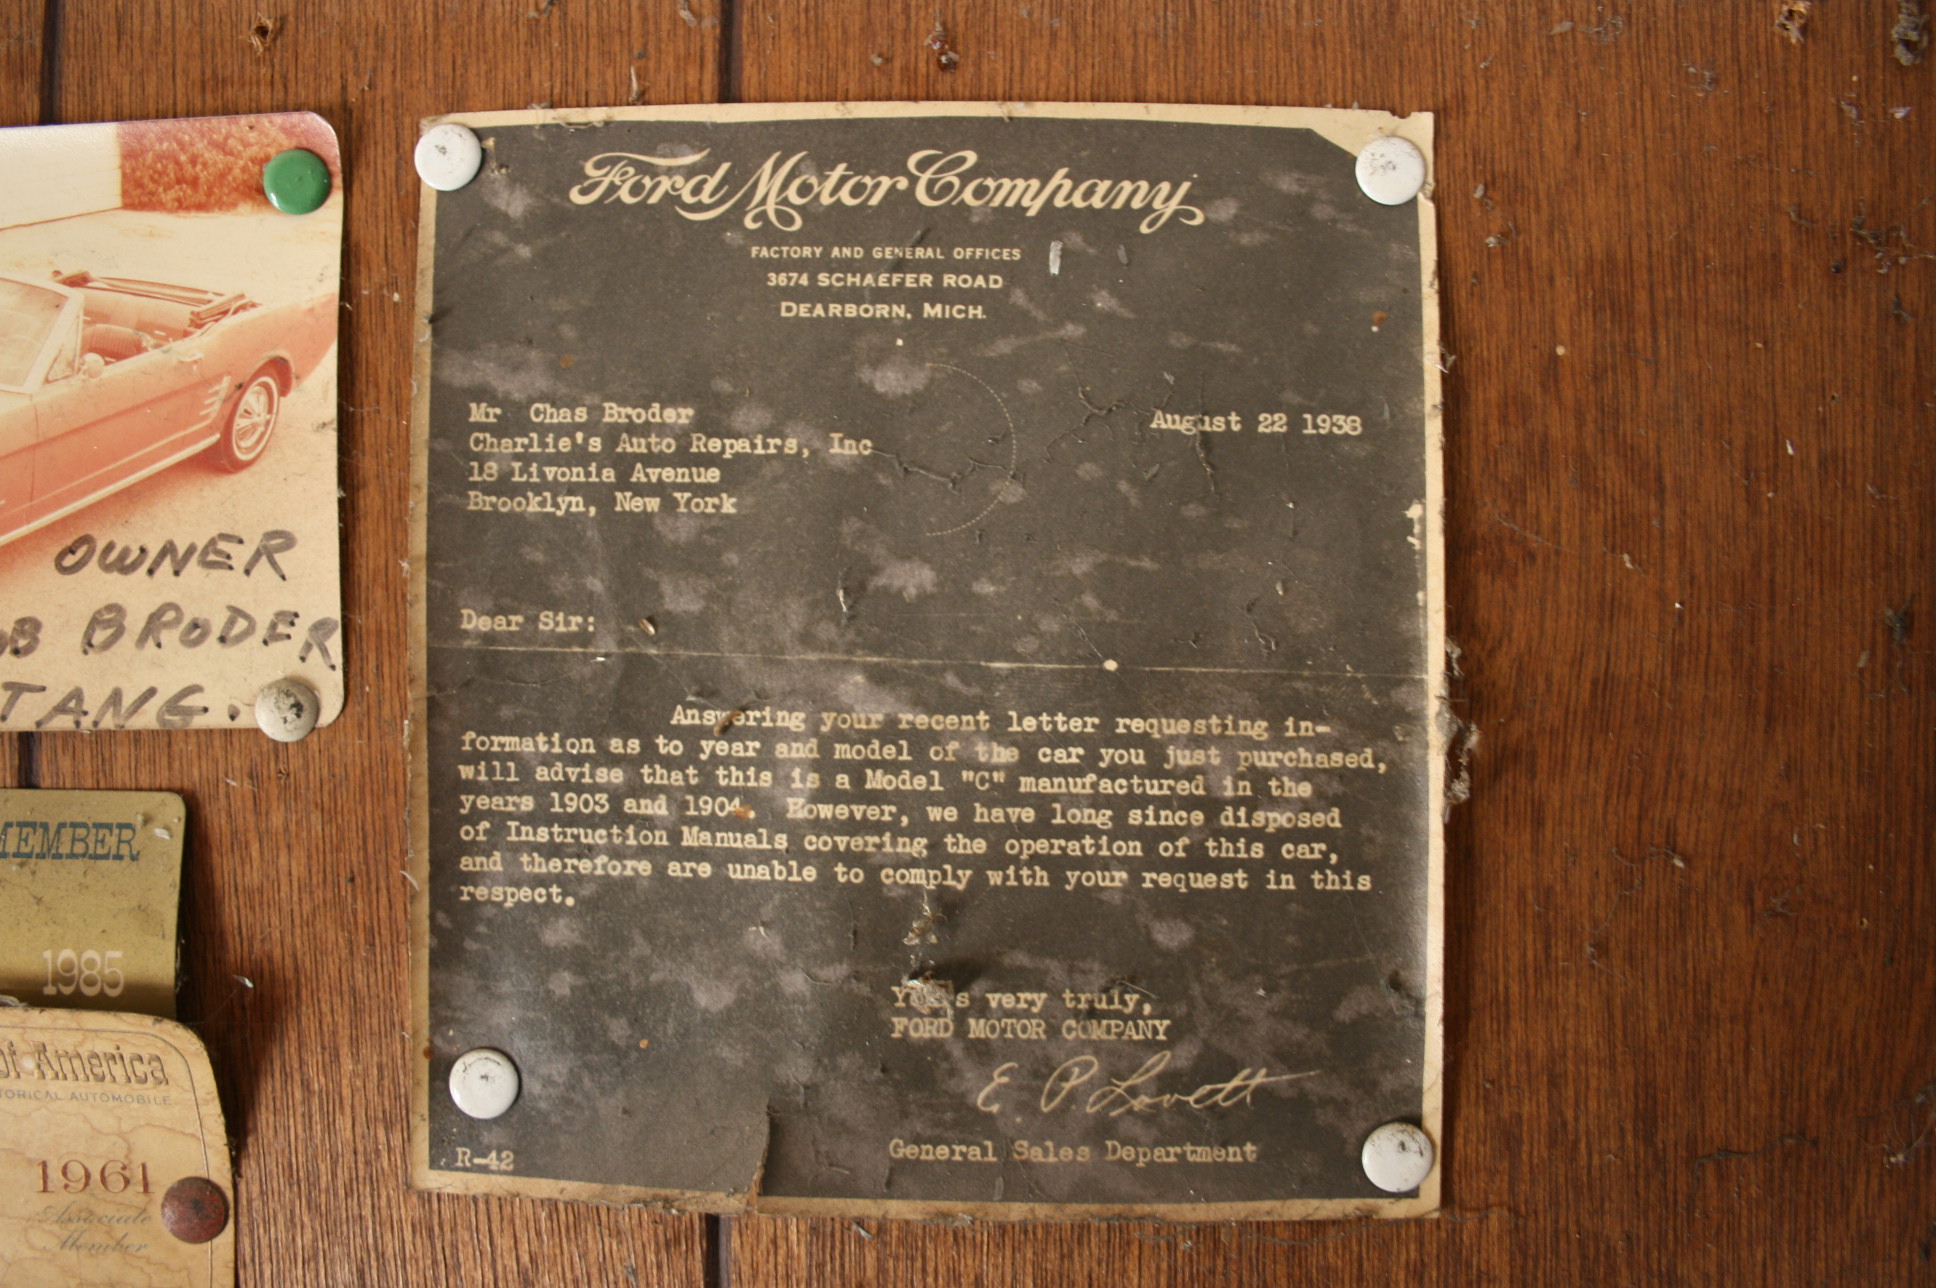 Ford Motor Company
FACTORY AND GENERAL OFFICES
3674 SCHAEFER ROAD
DEARBORN, MICH.
Mr Chas Broder
Charlie's Auto Repairs, Inc
18 Livonia Avenue
Brooklyn, New York
August 22 1938
Dear Sir:
Answering your recent letter requesting in-
formation as to year and model of the car you just purchased,
will advise that this is a Model "C" manufactured in the
years 1903 and 1904. However, we have long since disposed
of Instruction Manuals covering the operation of this car,
and therefore are unable to comply with your request in this
respect.
Yours very truly,
FORD MOTOR COMPANY
E. P. Lovett
General Sales Department
R-42
OWNER
OB BRODER
TANG.
MEMBER
1985
of America
TORICAL AUTOMOBILE
1961
Associate
Member